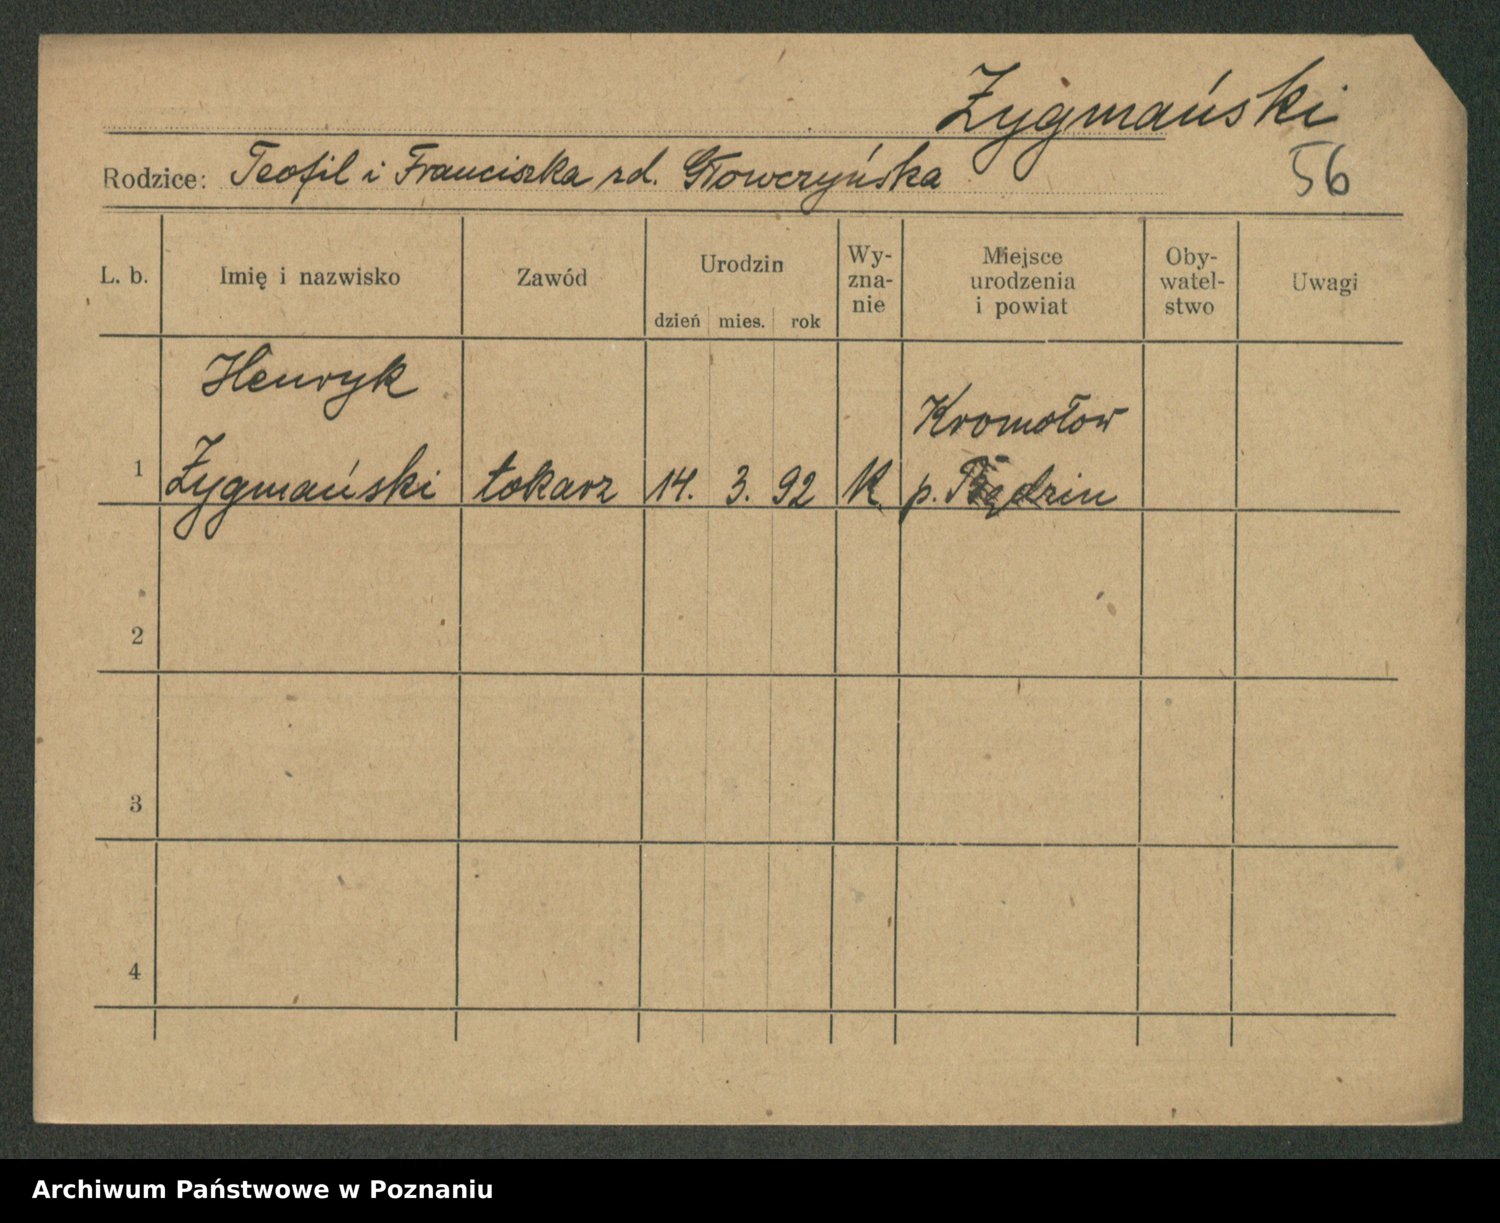 Zygmański
Rodzice: Teofil i Franciszka zd. Głowczyńska
56
L. b.
Imię i nazwisko
Zawód
Urodzin
dzień mies. rok
Wy-
zna-
nie
Miejsce
urodzenia
i powiat
Oby-
watel-
stwo
Uwagi
Henryk
Kromołow
1 Zygmański tokarz 14. 3. 92 K. p. Będzin
2
3
4
Archiwum Państwowe w Poznaniu